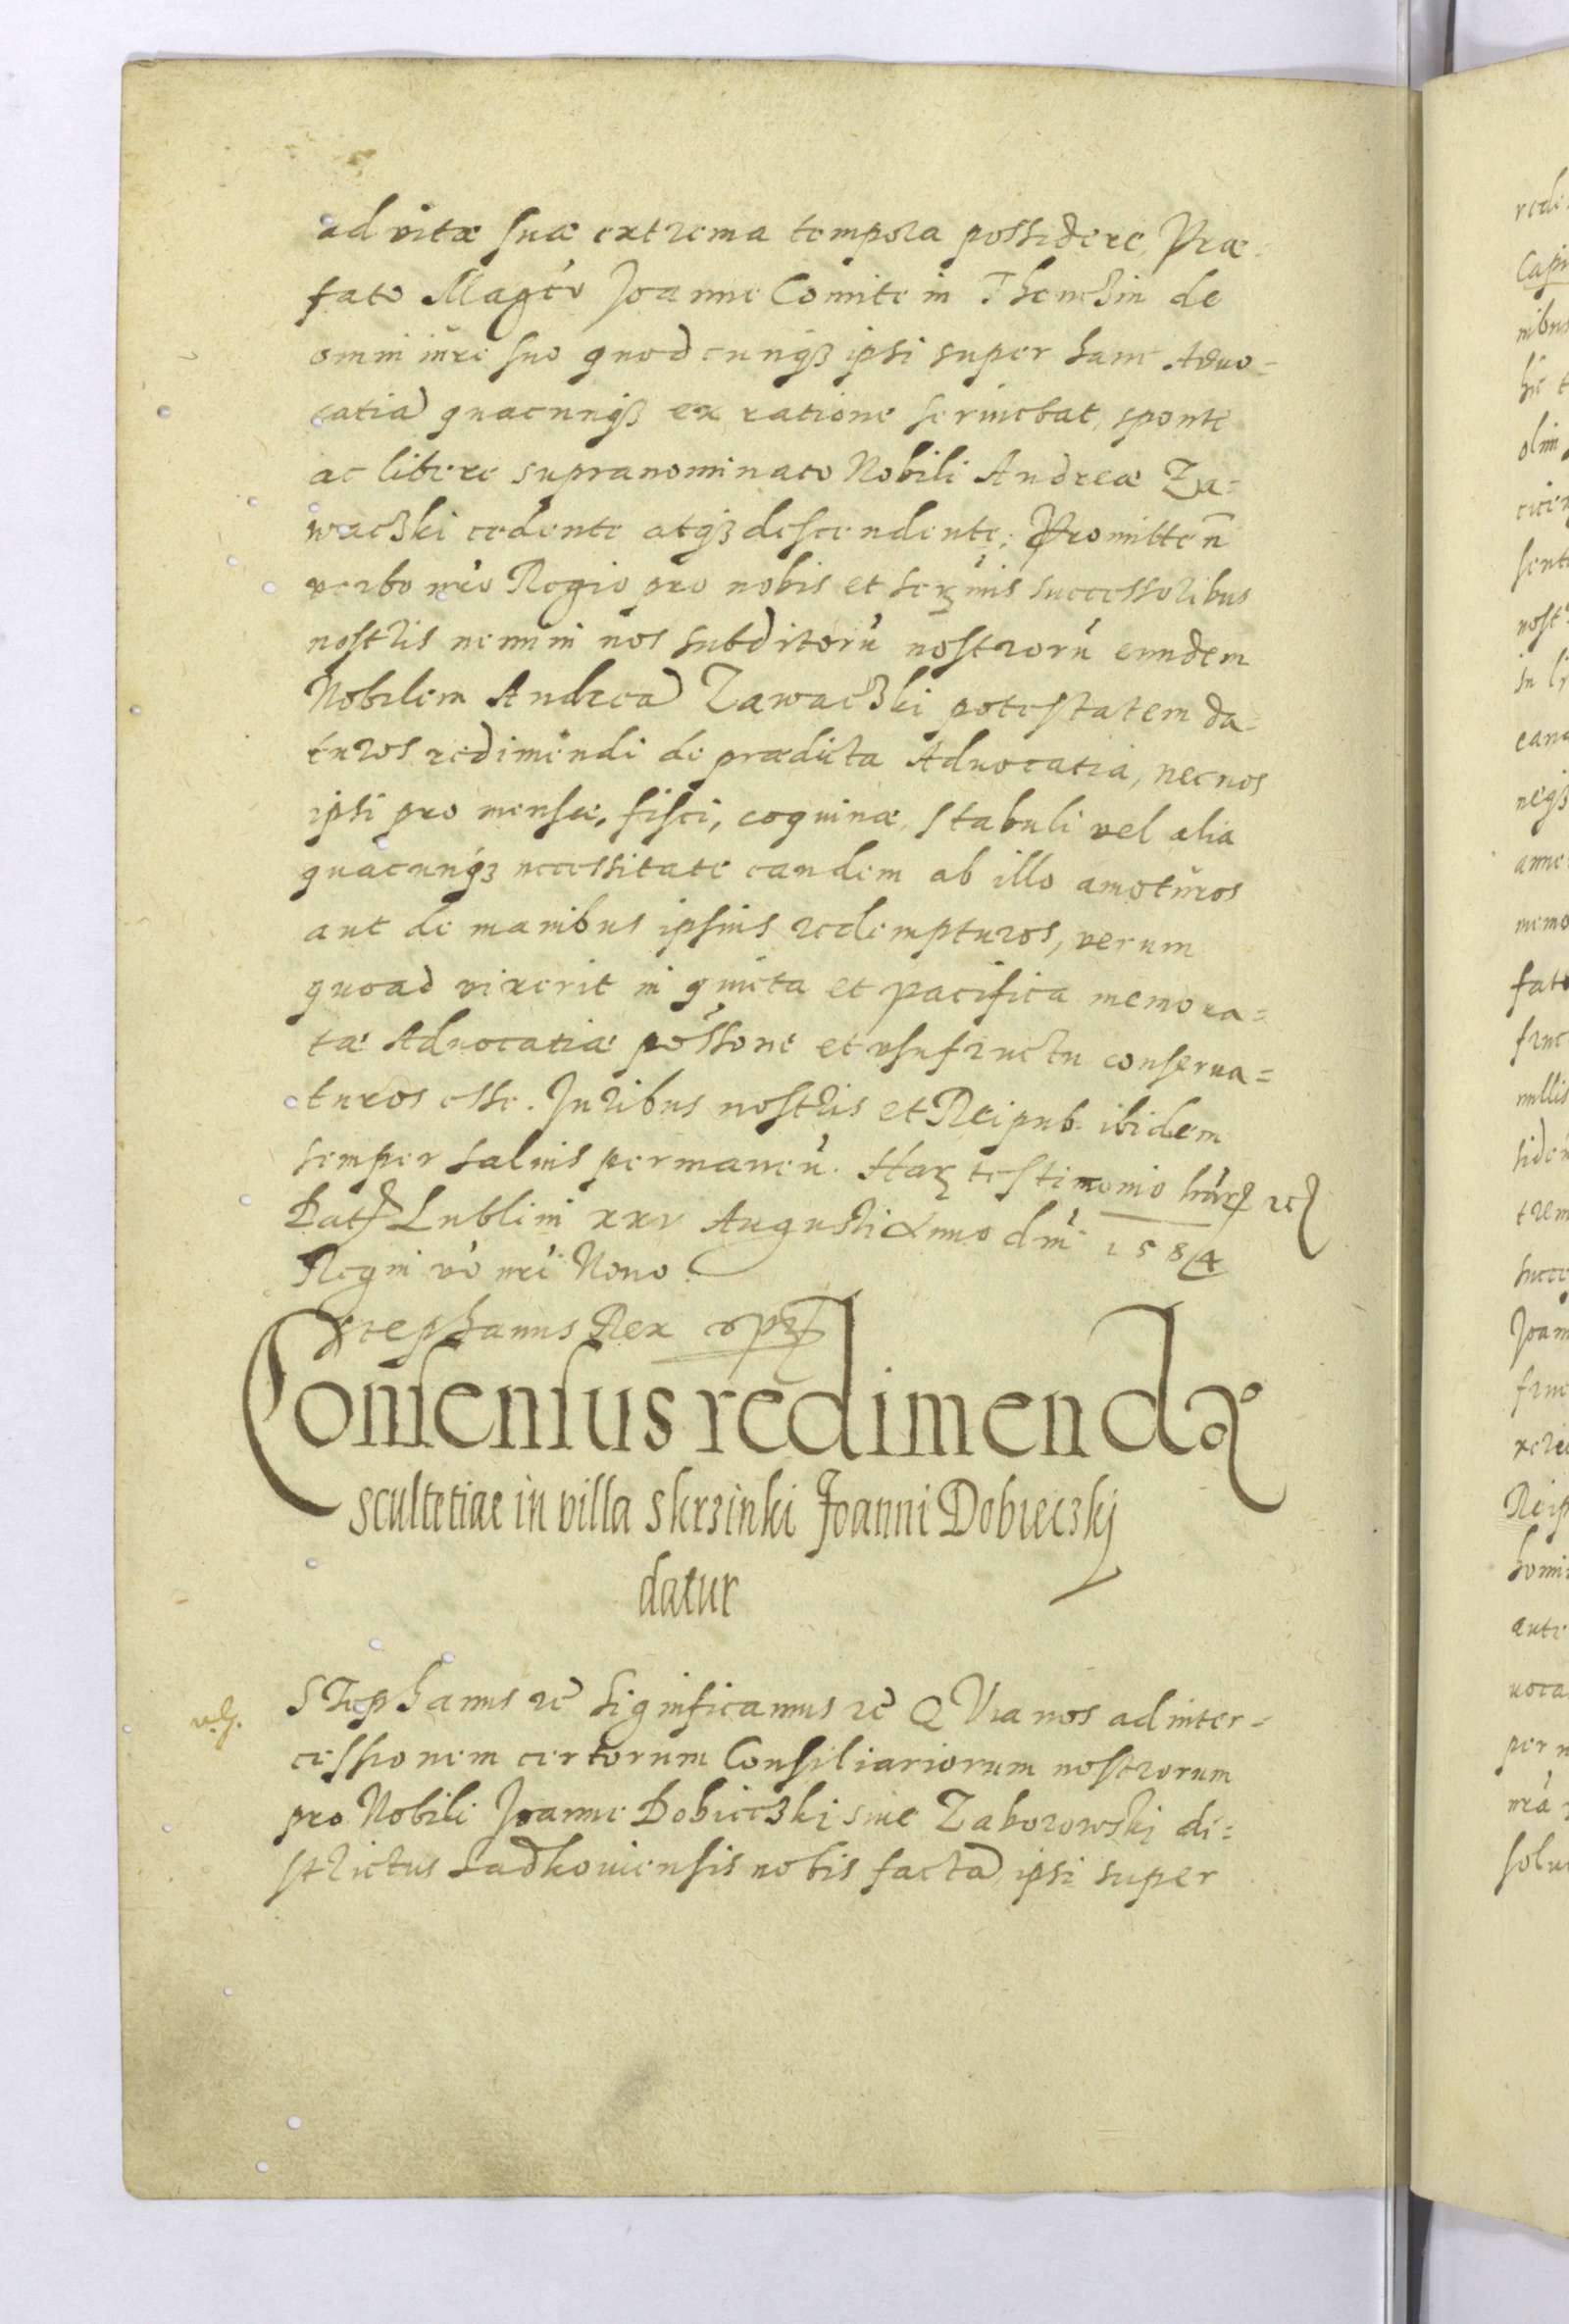 ad vitæ suæ extrema tempora possidere, Præ-
fato Magco Joanne Comite in Thenczin de
omni iure suo quodcunqȝ ipsi super hanc Advo=
catiã quacunqȝ ex ratione seruiebat, sponte
ac libere supranominato Nobili Andreæ Za=
waczki cedente atqȝ descendente; Promitten̄
verbo nr̃o Regio pro nobis et serm̃is successoribus
nostris nemini nos subditorũ nostrorũ eundem
Nobilem Andreã Zawaczki potestatem da-
turos redimendi de prædicta Aduocatia, nec nos
ipsi pro mensæ, fisci, coquinæ, stabuli vel alia
quacunqȝ necessitate eandem ab illo amoturos
aut de manibus ipsius redempturos, verum
quoad vixerit in quieta et pacifica memora=
tæ Aduocatiæ possone et vsufructu conserua=
turos esse. Juribus nostris et Reipub. ibidem
semper saluis permaneñ. Harꝫ testimonio lr̃arꝫ ꝛc
Datꝭ Lublini xxv Augusti Anno dnĩ 1584
Regni vo nri Nono.
Stephanus Rex sst
Consensus redimendæ
scultetiae in villa Skrzinki Joanni Dobieczkj
datur
STephanus ꝛc̃ Significamus ꝛc̃ QVia nos ad inter=
cessionem certorum Consiliariorum nostrorum
pro Nobili Joanne Dobieczkj siue Zaborowskj di=
strictus Sadkouiensis nobis factã, ipsi super